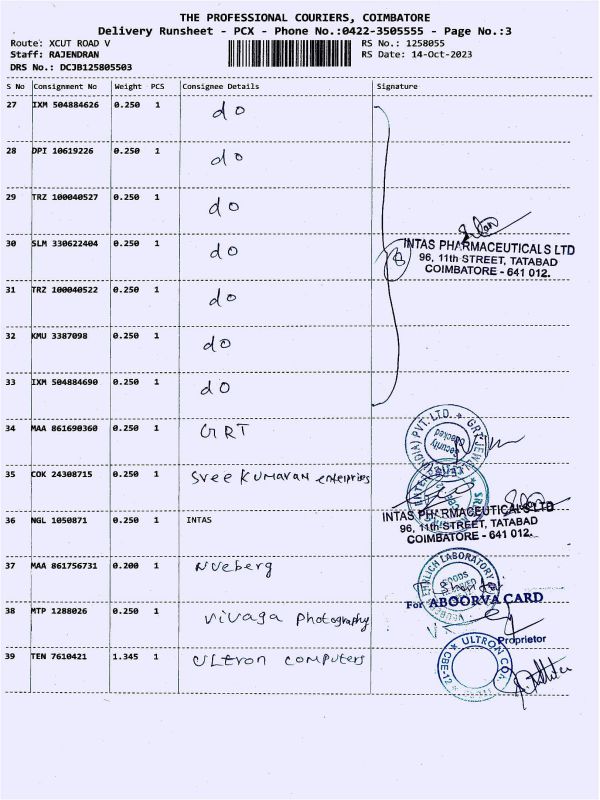 THE PROFESSIONAL COURIERS, COIMBATORE
Delivery Runsheet - PCX - Phone No.:0422-3505555 - Page No.:3
Route: XCUT ROAD V RS No.: 1258055
Staff: RAJENDRAN RS Date: 14-Oct-2023
DRS No.: DCJB125805503
S No Consignment No Weight PCS Consignee Details Signature
27 IXM 504884626 0.250 1 do
28 DPI 10619226 0.250 1 do
29 TRZ 100040527 0.250 1 do
30 SLM 330622404 0.250 1 do
8
INTAS PHARMACEUTICALS LTD
96, 11th STREET, TATABAD
COIMBATORE - 641 012.
31 TRZ 100040522 0.250 1 do
32 KMU 3387098 0.250 1 do
33 IXM 504884690 0.250 1 do
34 MAA 861690360 0.250 1 GRT
Security Checked
35 COK 24308715 0.250 1 Sree Kumaran enterpries
36 NGL 1050871 0.250 1 INTAS
INTAS PHARMACEUTICALS LTD
96, 11th STREET, TATABAD
COIMBATORE - 641 012.
37 MAA 861756731 0.200 1 Nueberg
EHRLICH LABORATORY
GOODS RECEIVED
For ABOORVA CARD
38 MTP 1288026 0.250 1 vivaga photography
Proprietor
39 TEN 7610421 1.345 1 Ultron computers
ULTRON COM
CBE-12